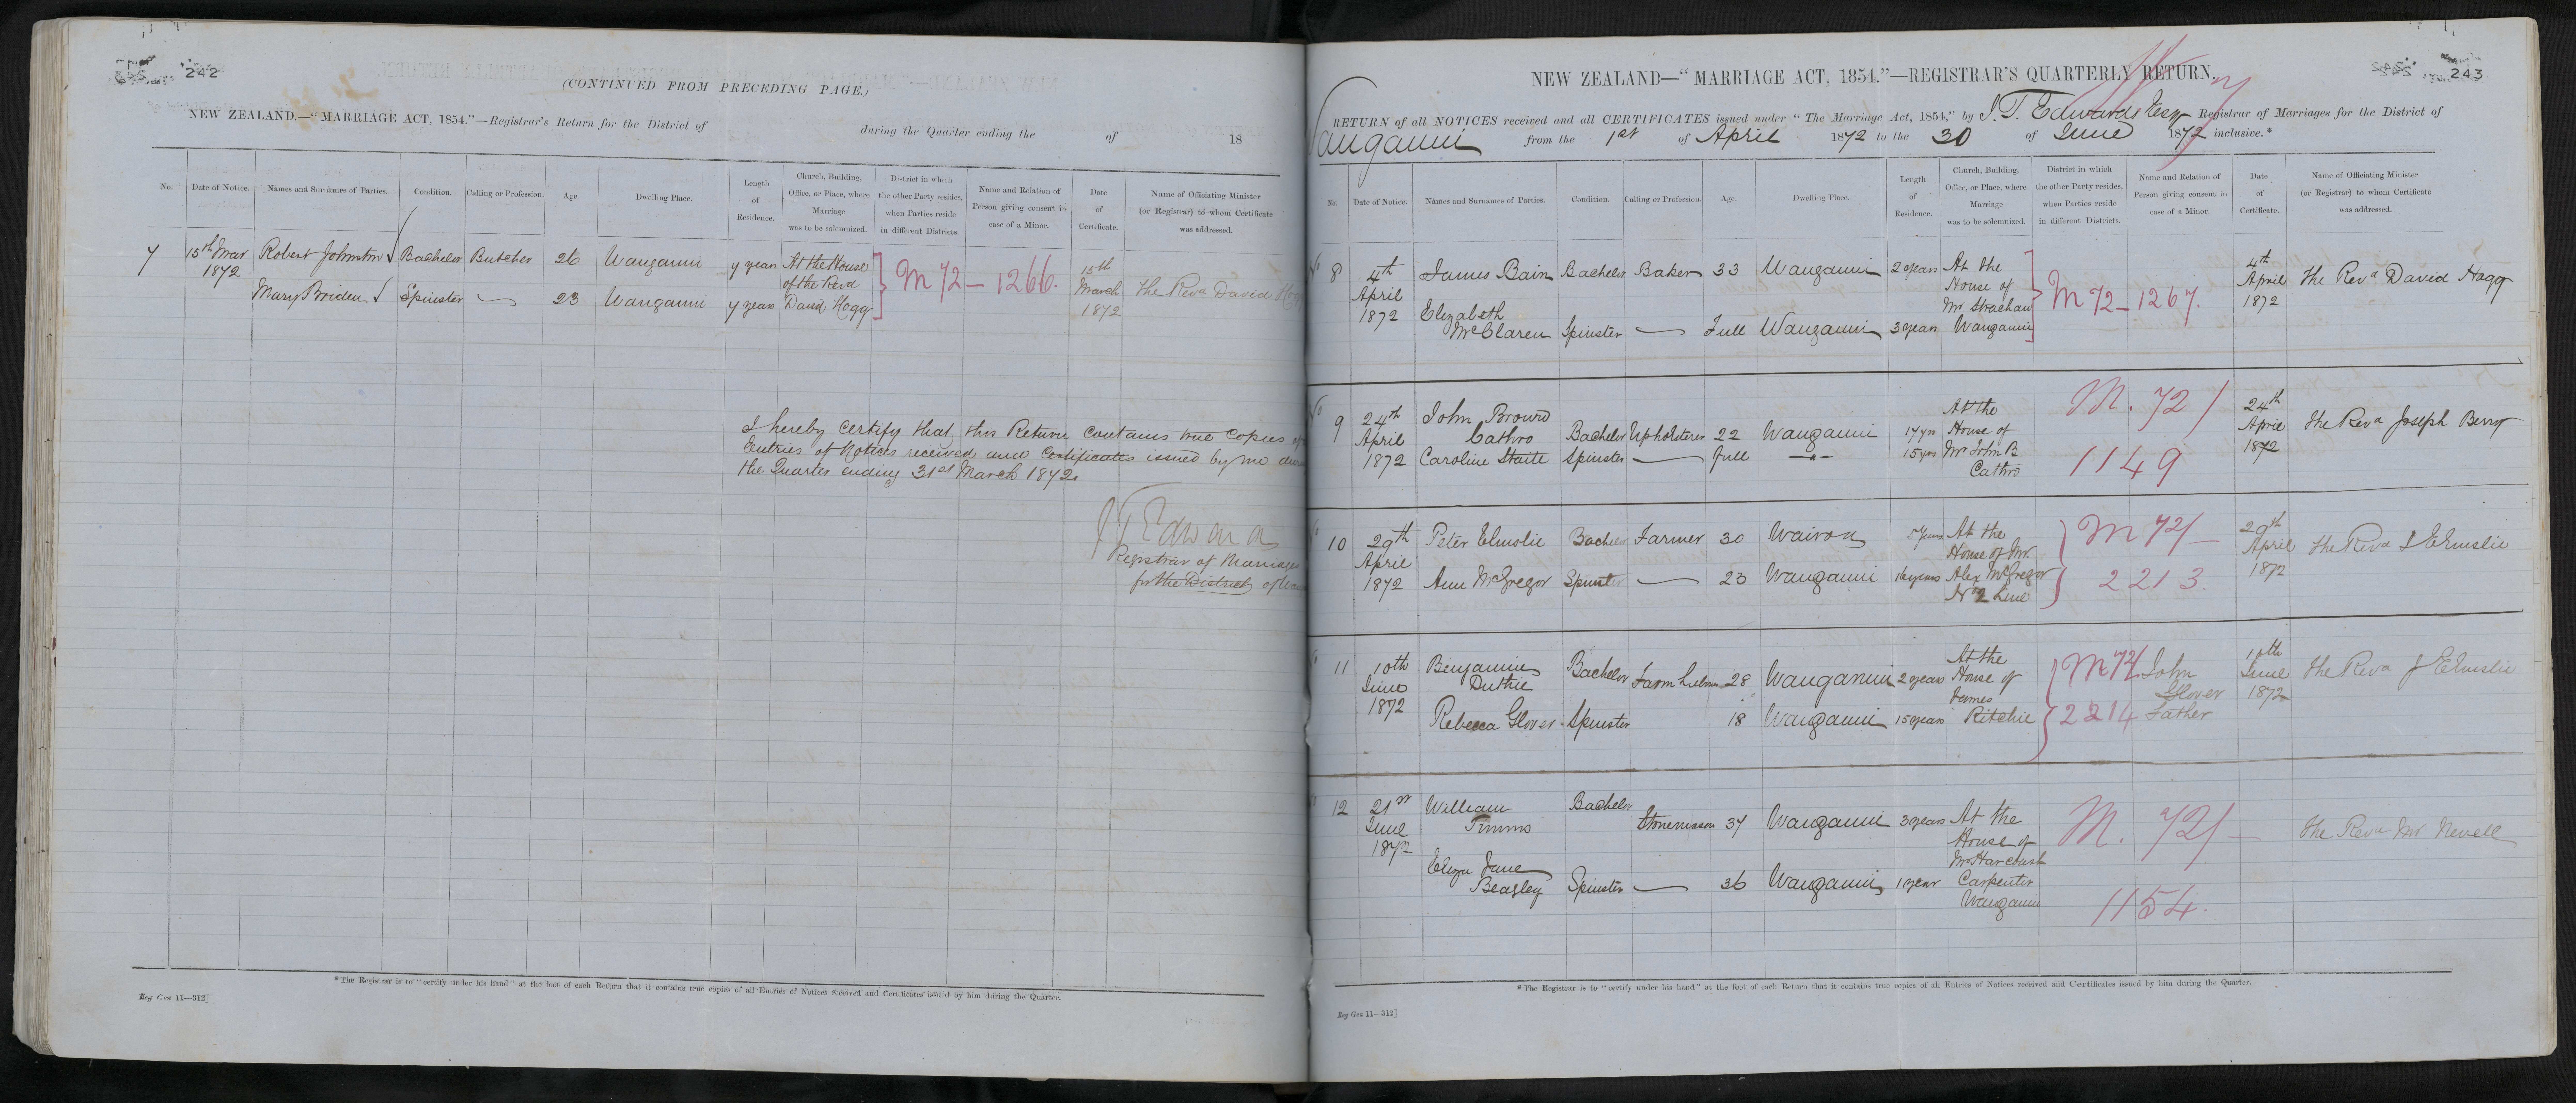 242
(CONTINUED FROM PRECEDING PAGE.)
NEW ZEALAND.—"MARRIAGE ACT, 1854."—Registrar's Return for the District of during the Quarter ending the of 18
No. Date of Notice. Names and Surnames of Parties. Condition. Calling or Profession. Age. Dwelling Place. Length of Residence. Church, Building, Office, or Place, where Marriage was to be solemnized. District in which the other Party resides, when Parties reside in different Districts. Name and Relation of Person giving consent in case of a Minor. Date of Certificate. Name of Officiating Minister (or Registrar) to whom Certificate was addressed.
7 15th Mar 1872 Robert Johnston Bachelor Butcher 26 Wanganui 7 years At the House of the Revd David Hogg M 72 — 1266. 15th March 1872 The Revd David Hogg
Mary Briden Spinster — 23 Wanganui 7 years
I hereby certify that this Return contains true copies of
Entries of Notices received and Certificates issued by me
the Quarter ending 31st March 1872.
J T Edwards
Registrar of Marriages
for the District of
*The Registrar is to "certify under his hand" at the foot of each Return that it contains true copies of all Entries of Notices received and Certificates issued by him during the Quarter.
Reg Gen 11—312]
243
NEW ZEALAND—"MARRIAGE ACT, 1854."—REGISTRAR'S QUARTERLY RETURN.
RETURN of all NOTICES received and all CERTIFICATES issued under "The Marriage Act, 1854," by J. T. Edwards Esq Registrar of Marriages for the District of
Wanganui from the 1st of April 1872 to the 30 of June 1872 inclusive.*
No. Date of Notice. Names and Surnames of Parties. Condition. Calling or Profession. Age. Dwelling Place. Length of Residence. Church, Building, Office, or Place, where Marriage was to be solemnized. District in which the other Party resides, when Parties reside in different Districts. Name and Relation of Person giving consent in case of a Minor. Date of Certificate. Name of Officiating Minister (or Registrar) to whom Certificate was addressed.
No 8 4th April 1872 James Bain Bachelor Baker 33 Wanganui 2 years At the House of Mr Strachan Wanganui M 72 — 1267. 4th April 1872 The Revd David Hogg
Elizabeth McClaren Spinster — Full Wanganui 3 years
No 9 24th April 1872 John Brown Cathro Bachelor Upholsterer 22 Wanganui 17 yrs At the House of Mr John B Cathro M. 72/ 1149 24th April 1872 The Revd Joseph Berry
Caroline Staite Spinster — Full —"— 15 yrs
No 10 29th April 1872 Peter Elmslie Bachelor Farmer 30 Wairoa 5 years At the House of Mr Alex McGregor No 2 Line M 72/ — 2213. 29th April 1872 The Revd J Elmslie
Ann McGregor Spinster — 23 Wanganui 16 years
No 11 10th June 1872 Benjamin Duthie Bachelor 28 Wanganui 2 years At the House of James Ritchie M 72/ 2214 John Glover Father 10th June 1872 The Revd J Elmslie
Rebecca Glover Spinster 18 Wanganui 15 years
No 12 21st June 1872 William Timms Bachelor Stonemason 37 Wanganui 3 years At the House of Mr Harcourt Carpenter Wanganui M. 72/ — 1154. The Revd Mr Nevell
Eliza Jane Beagley Spinster — 36 Wanganui 1 year
*The Registrar is to "certify under his hand" at the foot of each Return that it contains true copies of all Entries of Notices received and Certificates issued by him during the Quarter.
Reg Gen 11—312]